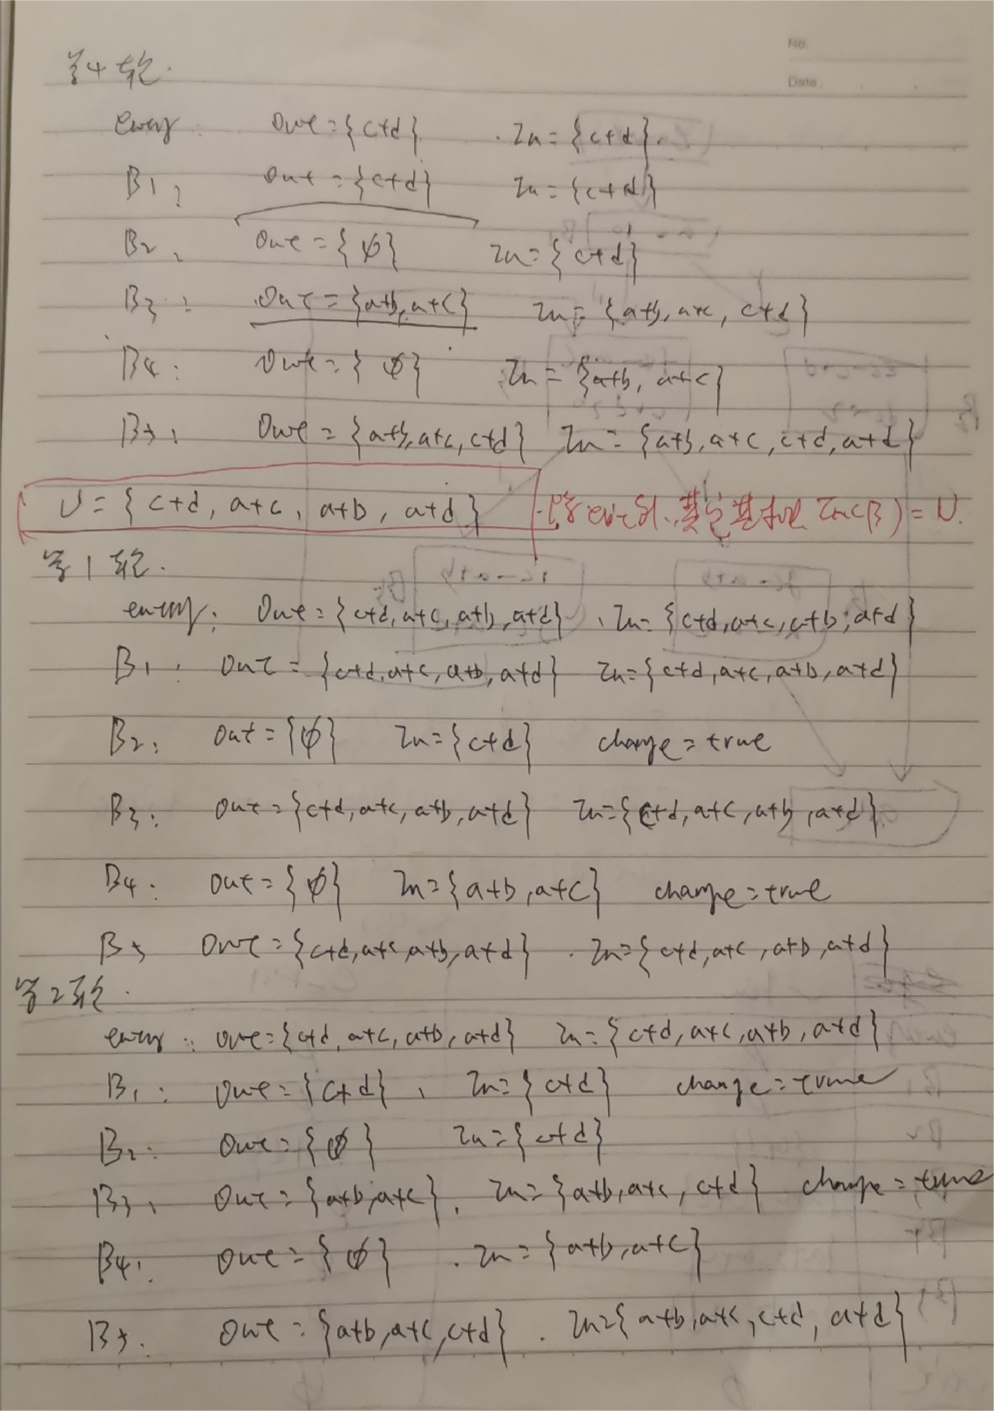 No.
Date.
第4轮.
entry: Out={c+d}. In={c+d}.
B1: Out={c+d} In={c+d}
B2: Out={φ} In={c+d}
B3: Out={a+b,a+c} In={a+b,a+c,c+d}
B4: Out={φ} In={a+b,a+c}
B5: Out={a+b,a+c,c+d} In={a+b,a+c,c+d,a+d}
U={c+d,a+c,a+b,a+d} 除exit外,其它基本块In(B)=U.
第1轮.
entry: Out={c+d,a+c,a+b,a+d}. In={c+d,a+c,a+b,a+d}
B1: Out={c+d,a+c,a+b,a+d} In={c+d,a+c,a+b,a+d}
B2: Out={φ} In={c+d} change=true
B3: Out={c+d,a+c,a+b,a+d} In={c+d,a+c,a+b,a+d}
B4: Out={φ} In={a+b,a+c} change=true
B5 Out={c+d,a+c,a+b,a+d}. In={c+d,a+c,a+b,a+d}
第2轮.
entry: Out={c+d,a+c,a+b,a+d} In={c+d,a+c,a+b,a+d}
B1: Out={c+d}, In={c+d} change=true
B2: Out={φ} In={c+d}
B3: Out={a+b,a+c}. In={a+b,a+c,c+d} change=true
B4: Out={φ}. In={a+b,a+c}
B5: Out={a+b,a+c,c+d}. In={a+b,a+c,c+d,a+d}